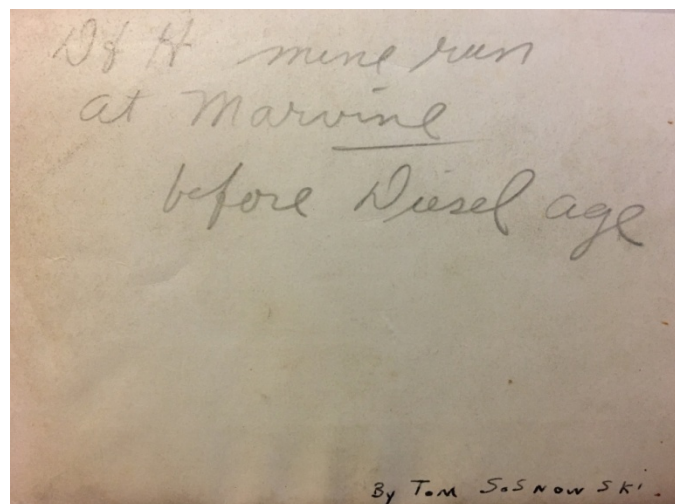 D & H mine run
at Marvine
before Diesel age
By Tom Sosnowski.